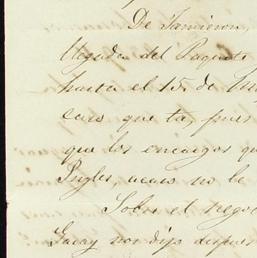 De Jamieson,
llegada del Paquete
hasta el 15 de
caso que ta, pues
que los encargos
Ingles, acaso no le
Sobre el nego
Garay nos dijo despues